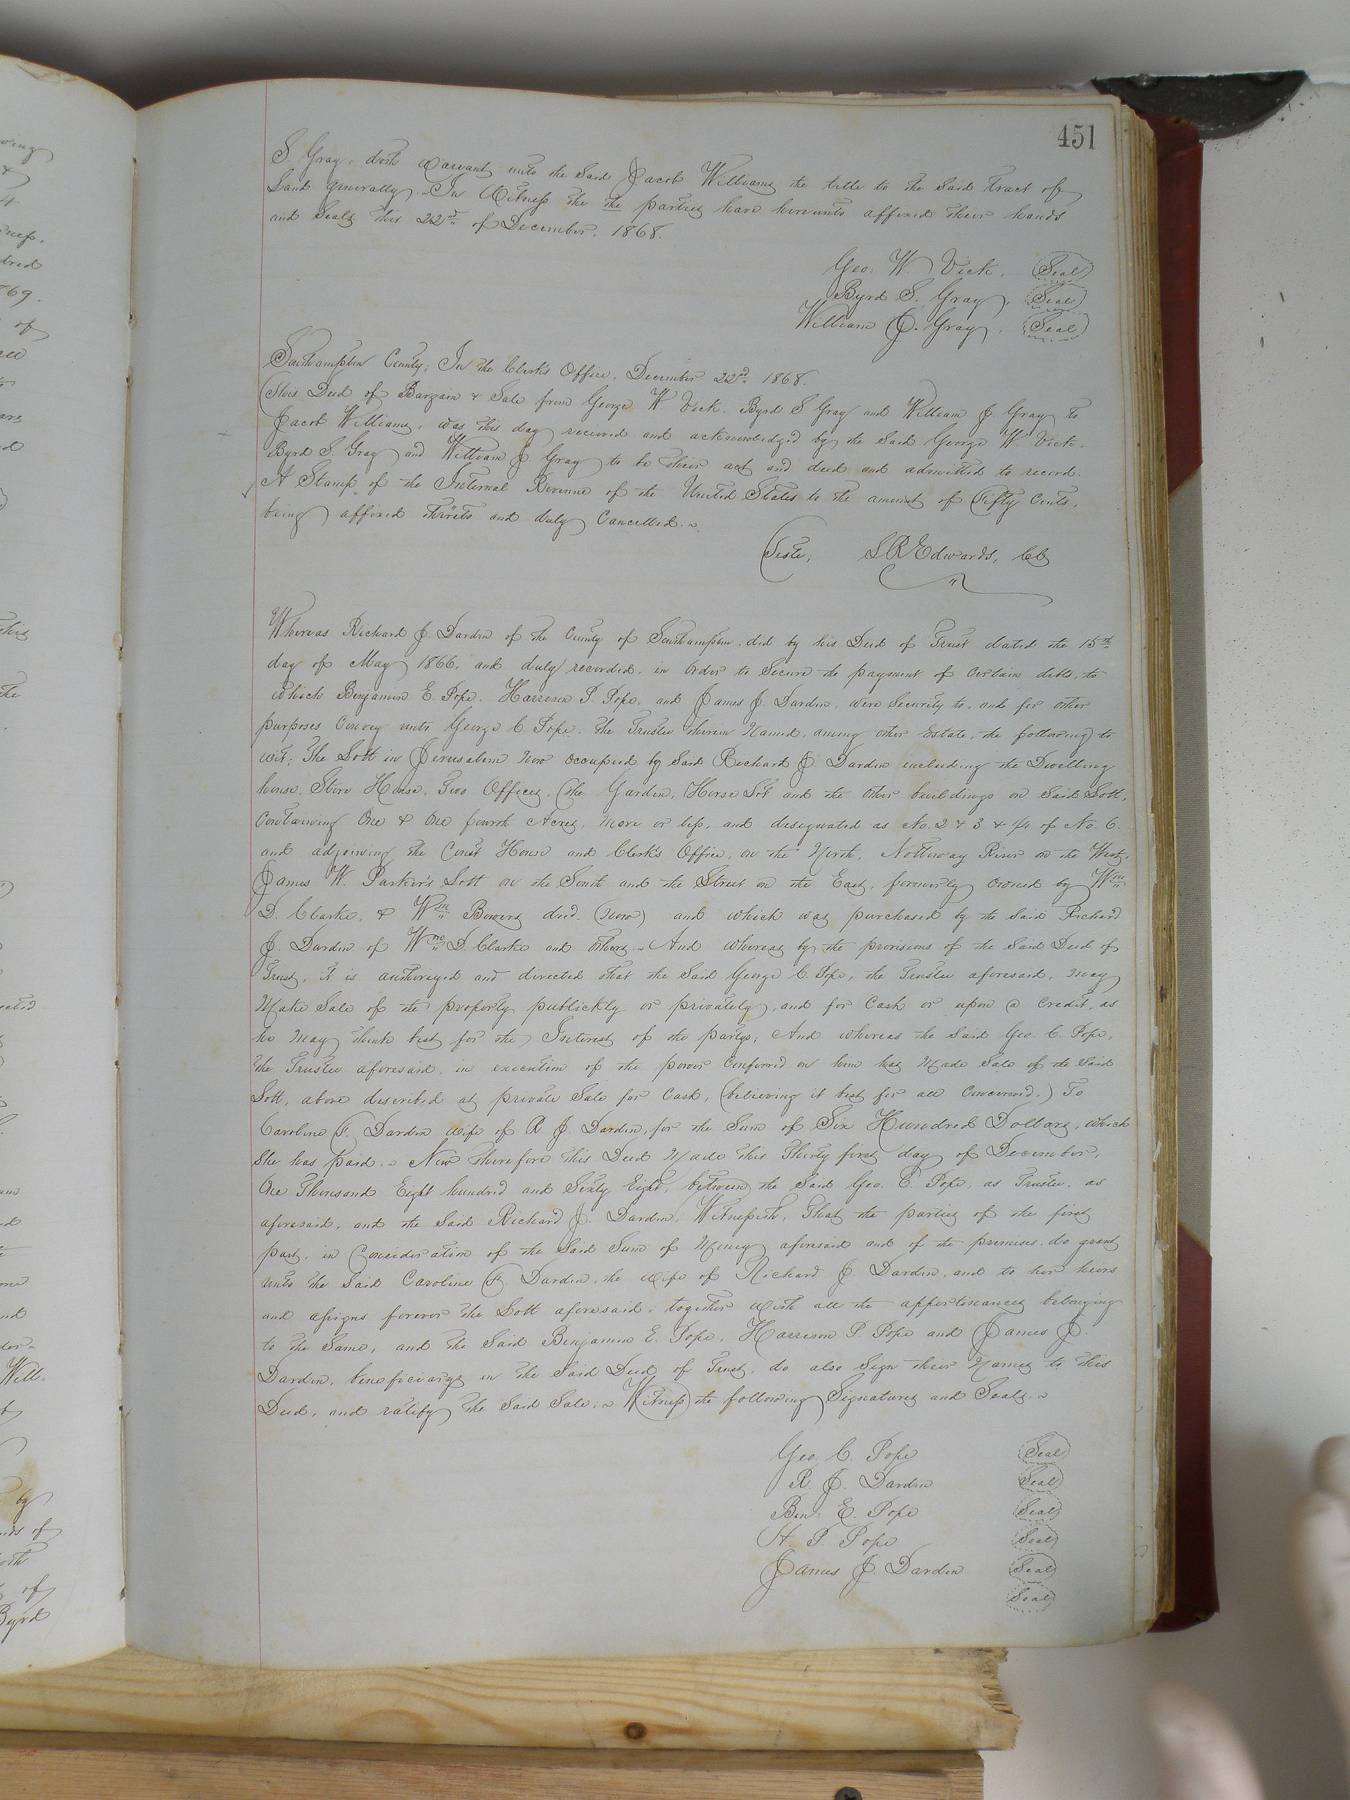 451
S Gray, doth warrant unto the Said Jacob Williams the title to the Said Tract of
Land generally. In Witness the the parties have hereunto affixed their hands
and Seals this 22nd of December. 1868.
Geo. W Vick. Seal
Byrd S. Gray, Seal
William J. Gray. Seal
Southampton County; In the Clerk's Office. December 22nd 1868.
This Deed of Bargain & Sale from George W Vick. Byrd S Gray and William J Gray to
Jacob Williams, was this day received and acknowledged by the Said George W Vick.
Byrd S. Gray and William J Gray to be their act and deed and admitted to record.
A Stamp of the Internal Revenue of the United States to the amount of Fifty Cents,
being affixed thereto and duly Cancelled.
Teste; L R Edwards, CC
Whereas Richard J. Darden of the County of Southampton. did by his Deed of Trust dated the 15th
day of May 1866, and duly recorded. in order to Secure the payment of Certain debts, to
which Benjamin E. Pope. Harrison P. Pope. and James J. Darden, were Security to, and for other
purposes Convey unto George C Pope. the Trustee therein Named. among other Estate, the following to
wit; The Lott in Jerusalem Now occupied by Said Richard J Darden including the Dwelling
house. Store House. Two Offices, The Garden, Horse Lot and the other buildings on Said Lott,
Containing One & One fourth Acres, more or less, and designated as No. 2 & 3 & 1/4 of No. 6.
and adjoining the Court House and Clerk's Office, on the North, Nottoway River on the West,
James W. Parker's Lott on the South and the Street on the East, formerly owned by Wm
D. Clarke, & Wm Bowers decd. (Now) and which was purchased by the Said Richard
J. Darden of Wm D. Clarke and others. And whereas by the provisions of the Said Deed of
Trust, it is authorized and directed that the Said George C. Pope, the Trustee aforesaid. may
Make Sale of the property publickly or privately, and for Cash or upon a Credit, as
he may think best for the Interest of the partys, And whereas the Said Geo. C. Pope,
the Trustee aforesaid. in execution of the power Conferred on him has Made Sale of the Said
Lott, above described at private Sale for Cash, (believing it best for all Concerned.) To
Caroline F. Darden wife of R. J. Darden, for the Sum of Six Hundred Dollars, which
She has paid. Now Therefore this Deed Made this Thirty first day of December,
One Thousand Eight hundred and Sixty Eight, between the Said Geo. C. Pope, as Trustee, as
aforesaid, and the Said Richard J. Darden, Witnesseth, That the parties of the first
part, in Consideration of the Said Sum of Money aforesaid and of the premises. do grant
unto the Said Caroline F. Darden, the wife of Richard J. Darden, and to her heirs
and assigns forever the Lott aforesaid, together with all the appertenances belonging
to the Same, and the Said Benjamin E. Pope, Harrison P. Pope and James J.
Darden, beneficiarys in the Said Deed of Trust, do also Sign their Names to this
Deed, and ratify the Said Sale. Witness the following Signatures and Seals.
Geo. C. Pope Seal
R J. Darden Seal
Ben. E. Pope Seal
H. P. Pope Seal
James J. Darden Seal
Seal